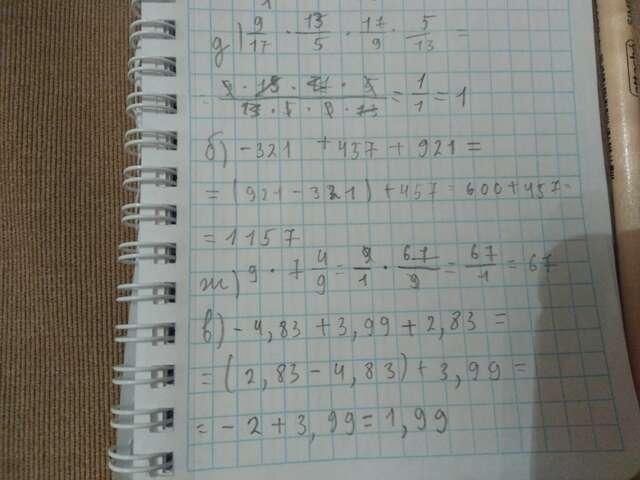 д) 9/17 · 13/5 · 17/9 · 5/13 =
9 · 13 · 17 · 5 / 17 · 5 · 9 · 13 = 1/1 = 1
б) -321 + 437 + 921 =
= (921 - 321) + 457 = 600 + 457 =
= 1157
ж) 9 · 7 4/9 = 9/1 · 67/9 = 67/1 = 67
в) - 4,83 + 3,99 + 2,83 =
= (2,83 - 4,83) + 3,99 =
= - 2 + 3,99 = 1,99